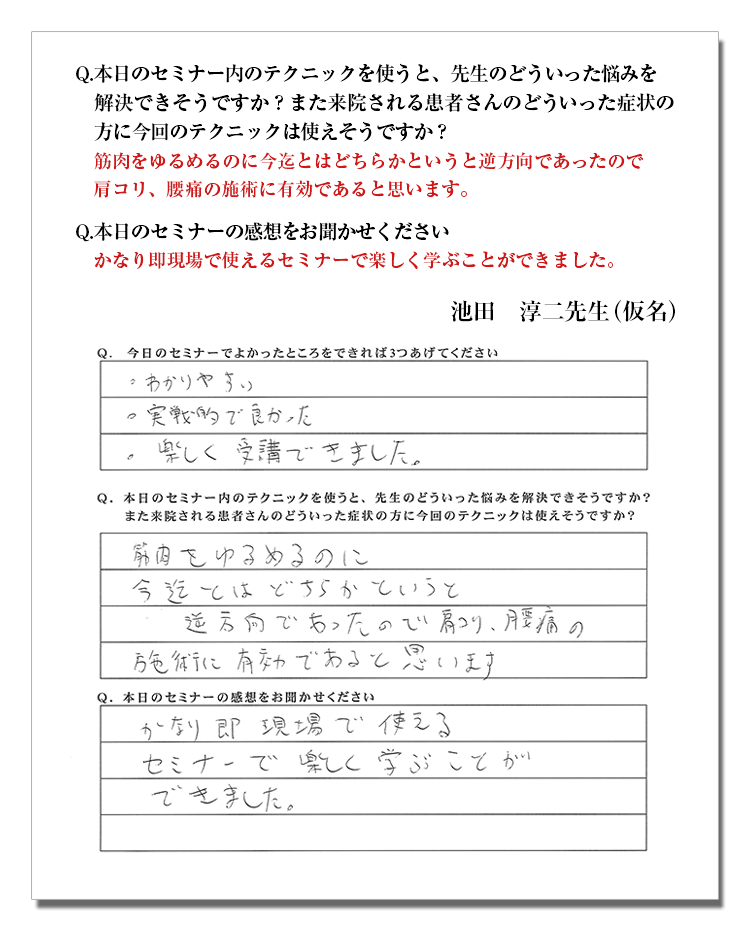 Q.本日のセミナー内のテクニックを使うと、先生のどういった悩みを
解決できそうですか？また来院される患者さんのどういった症状の
方に今回のテクニックは使えそうですか？
筋肉をゆるめるのに今迄とはどちらかというと逆方向であったので
肩コリ、腰痛の施術に有効であると思います。
Q.本日のセミナーの感想をお聞かせください
かなり即現場で使えるセミナーで楽しく学ぶことができました。
池田　淳二先生（仮名）
Q.　今日のセミナーでよかったところをできれば3つあげてください
。わかりやすい
。実戦的で良かった
。楽しく受講できました。
Q．本日のセミナー内のテクニックを使うと、先生のどういった悩みを解決できそうですか？
また来院される患者さんのどういった症状の方に今回のテクニックは使えそうですか？
筋肉をゆるめるのに
今迄とはどちらかというと
逆方向であったので肩コリ、腰痛の
施術に有効であると思います
Q．本日のセミナーの感想をお聞かせください
かなり即現場で使える
セミナーで楽しく学ぶことが
できました。